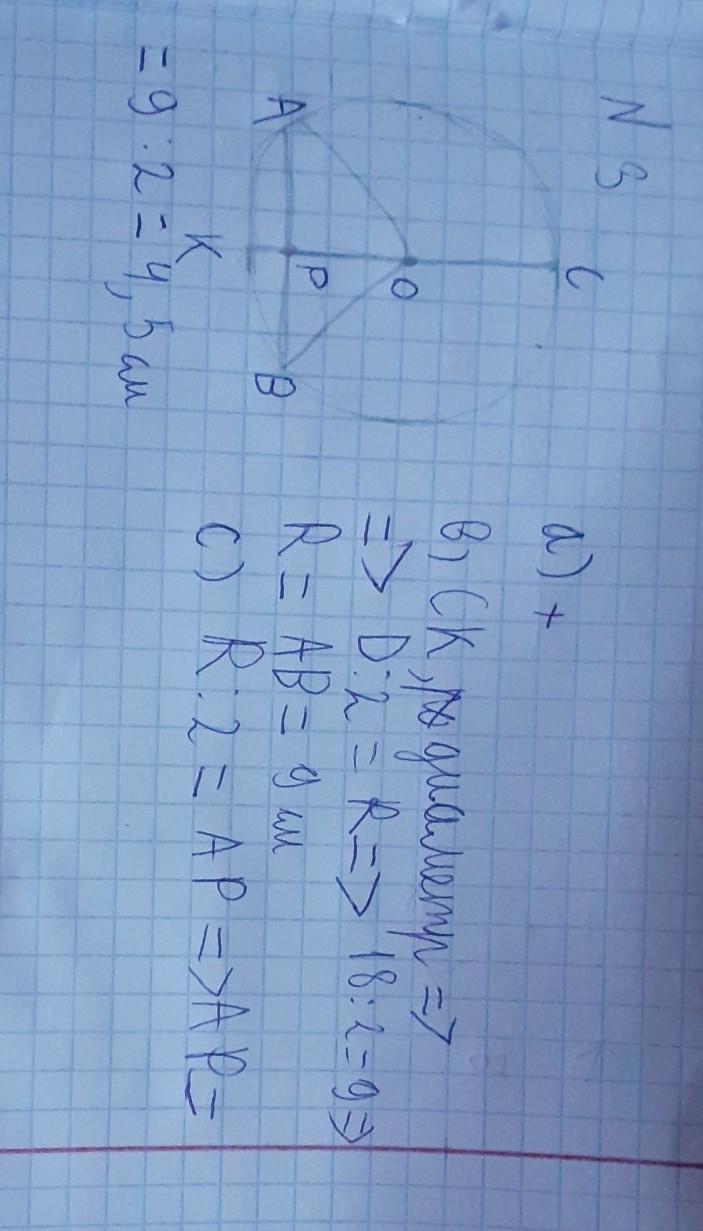 N 3
C
O
A P B
K
a) +
в) CK, диаметр =>
=> D:2 = R => 18:2=9 =>
R = AB = 9 см
c) R:2 = AP => AP =
= 9:2 = 4,5 см